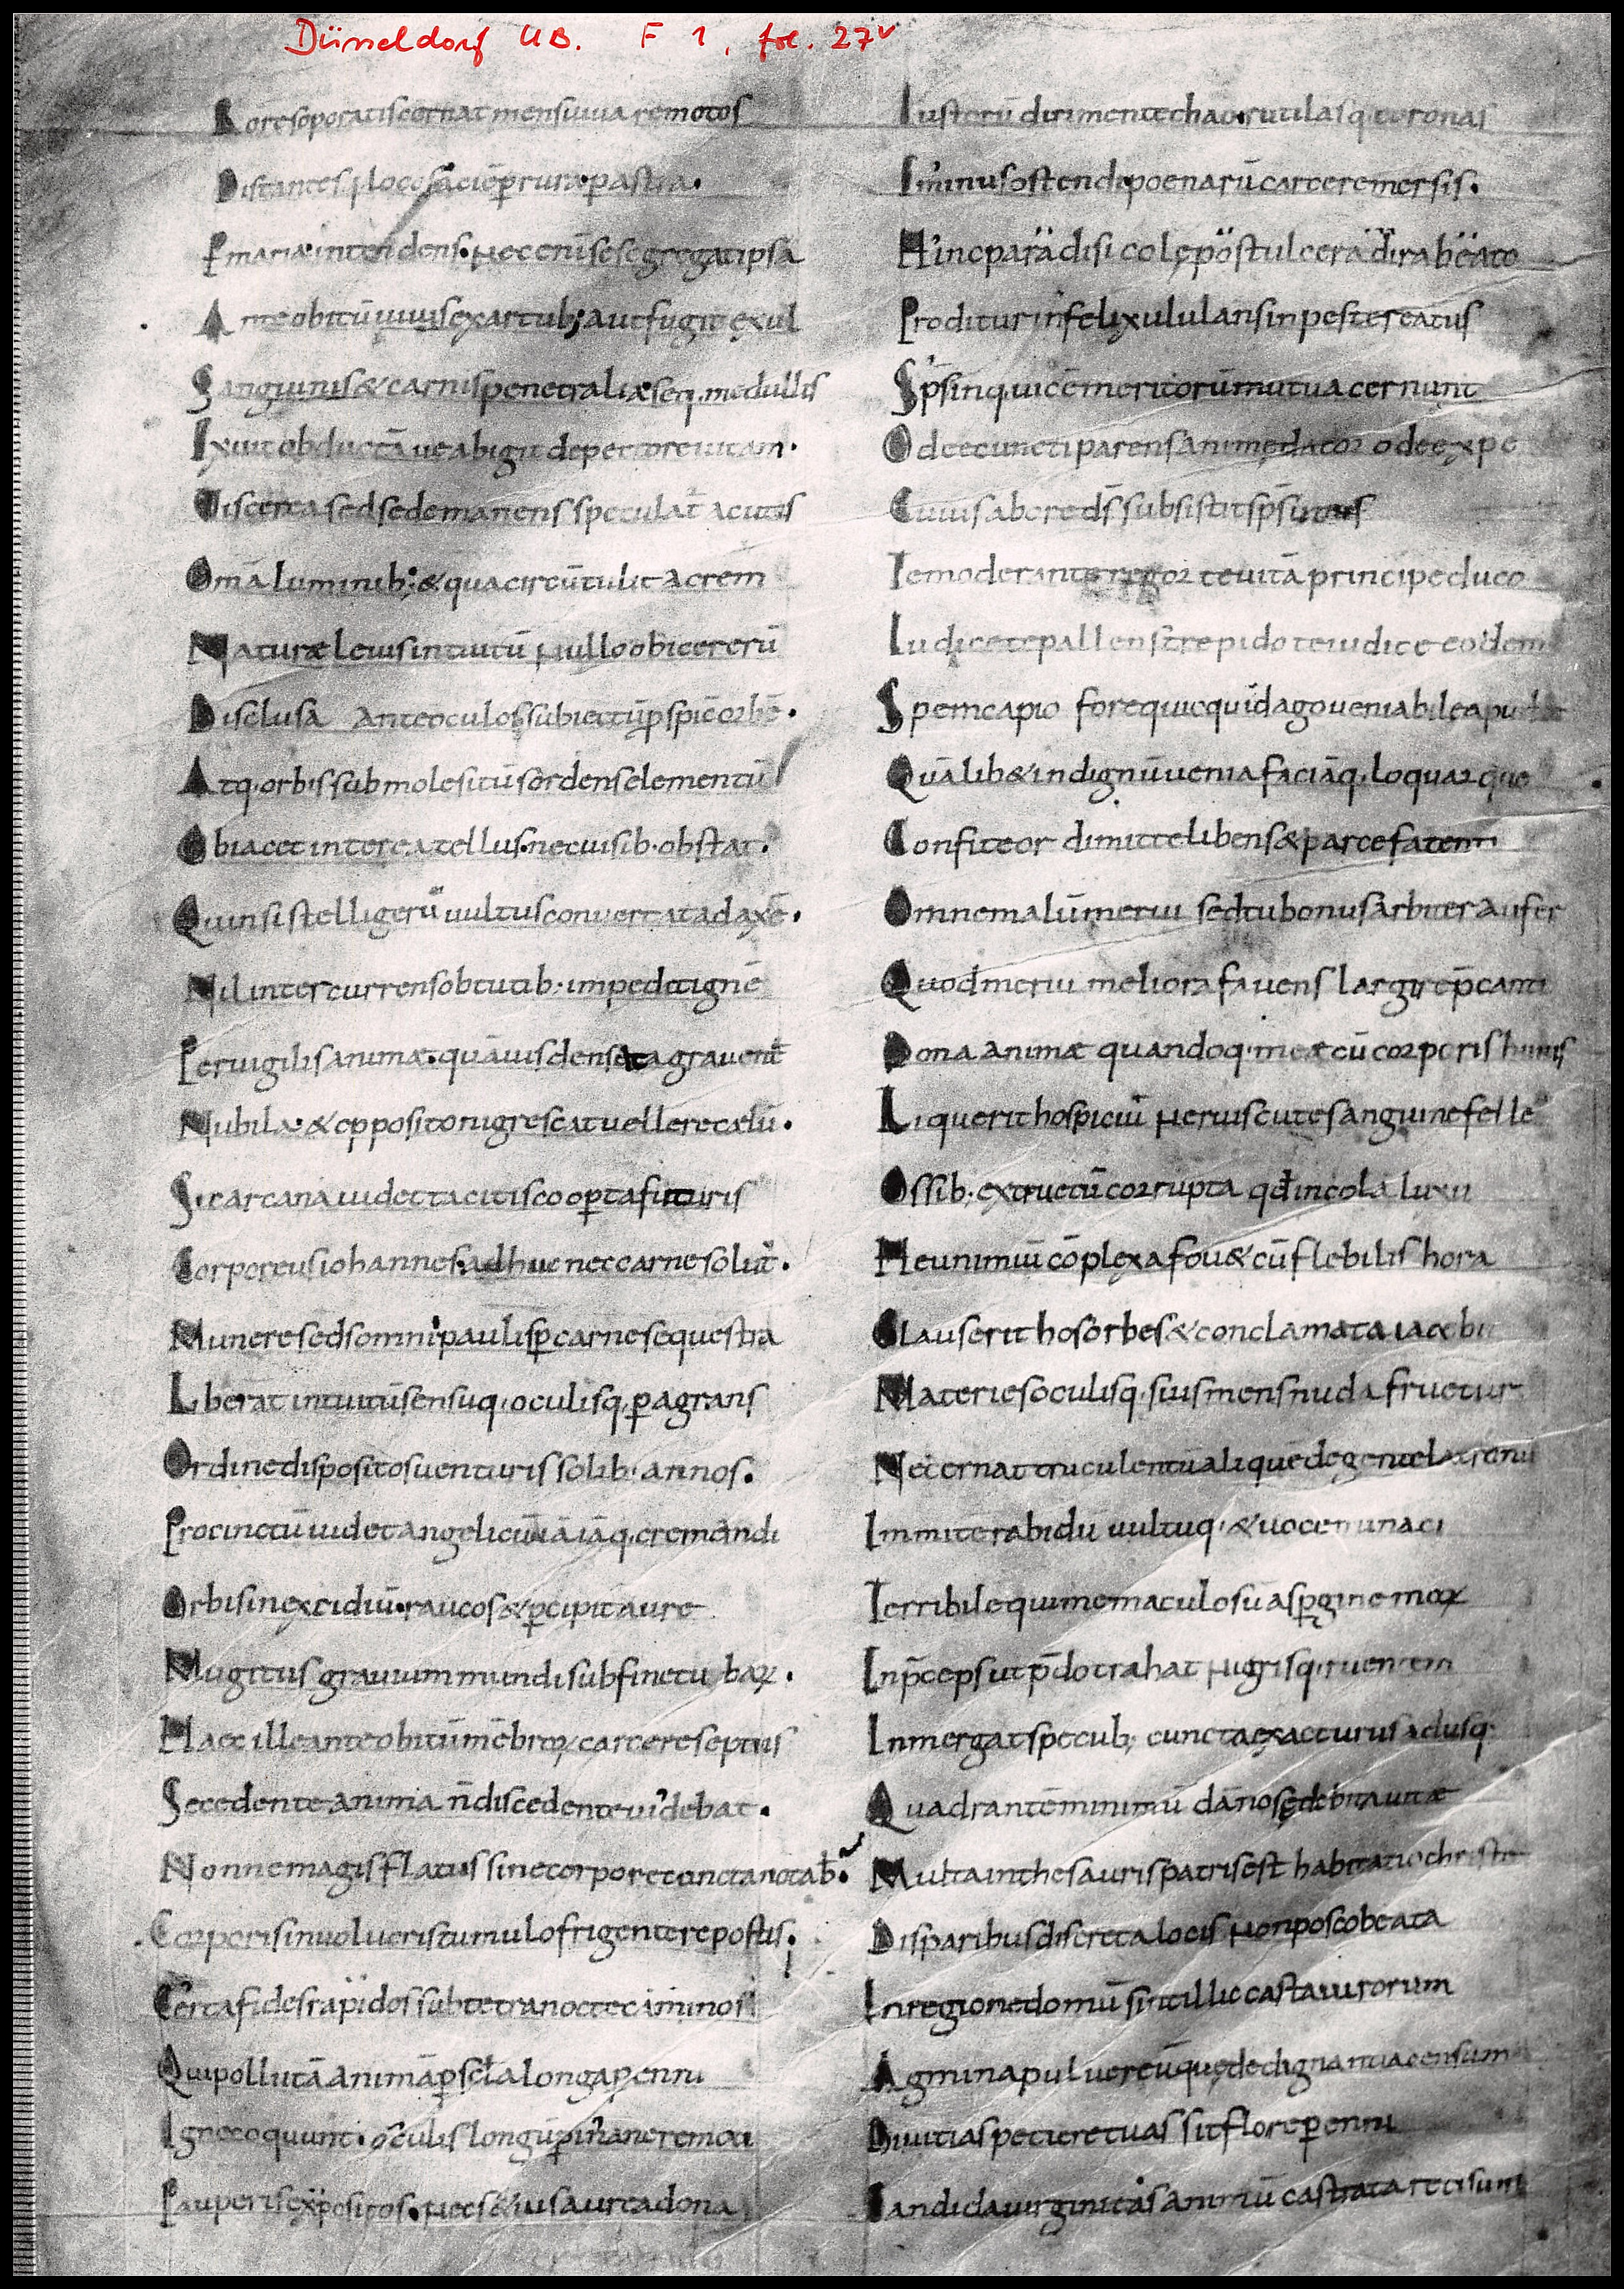 Düsseldorf UB. F 1, fol. 27v
Rore soporatis cernat mens uiua remotos
Distantesq; locos aciē ꝑ rura · ꝑ astra ·
P maria intendens · Nec enī se segregat ipsa
Ante obitū uiuis ex artub; aut fugit exul
Sanguinis & carnis penetralia seq. medullis
Exuit obductā ue abigit de pectore uitam ·
Viscera sed sede manens speculat̄ acutis
Omā luminib; & qua circūtulit acrem
Naturæ leuis intuitū Nullo obice rerū
Disclusa ante oculos subiectū ꝑspic̄ orbē ·
Atq· orbis sub mole sitū sordens elementū
Obiacet interea tellus · nec uisib· obstat ·
Quin si stelligerū uultus conuertat ad axē ·
Nil intercurrens obtutib· impedit ignē
Peruigilis animæ · quāuis denseta grauent̄
Nubila · & opposito nigrescat uellere cælū ·
Sic arcana uidet tacitis cooperta futuris
Corporeus iohannes · adhuc nec carne solut̄ ·
Munere sed somni paulisꝑ carne sequestra
Liberat intuitū sensuq· oculisq· ꝑagrans
Ordine dispositos uenturis solib· annos ·
Procinctū uidet angelicū iā iāq· cremandi
Orbis in excidiū · raucos & ꝑcipit aure
Mugitus grauium mundi sub fine tubaꝝ ·
Haec ille ante obitū mēbroꝝ carcere septus
Secedente anima n̄ discedente uidebat ·
Nonne magis flatus sine corpore cuncta notab̄ ·
Corporis inuolucris tumulo frigente repostis ·
Certa fides rapidos sub tetra nocte caminos
Qui pollutā animā ꝑ scl̄a longa perenni
Igne coquunt · oculis longū ꝑ inane remoti
Pauperis expositos · Nec setius aurea dona
Iustorū dirimente chao rutilasq· coronas
Eminus ostendi poenarū carcere mersis ·
Hinc paradisi colę post ulcera dira beato
Proditur infelix ululans in peste reatus
Sp̄s inq· uicē meritorū mutua cernunt
O dee cuncti parens animę dator o dee xpe
Cuius ab ore dš subsistit sp̄s unus
Te moderante regor te uitā principe duco
Iudice te pallens trepido te iudice eodem
Spem capio fore quicquid ago ueniabile apud te
Quālib& indignū uenia faciāq· loquarque
Confiteor dimitte libens & parce fatenti
Omne malū merui sed tu bonus arbiter aufer
Quod merui meliora fauens largire p̄canti
Dona animæ quandoq· meæ cū corporis huius
Liquerit hospiciū Neruis cute sanguine felle
Ossib· extructū corrupta qđ incola luxu
Heu nimiū cōplexa fou& cū flebilis hora
Clauserit hos orbes & conclamata iacebit
Materies oculisq· suis mens nuda fruetur
Ne cernat truculentū aliquē de gente latronū
Immitē rabidū uultuq· & uoce minaci
Terribilē qui me maculosū asꝑgine moꝝ
In p̄ceps ut p̄do trahat Nigrisq· ruentem
Inmergat specub; cuncta exacturus adusq·
Quadrantē minimū dānosę debita uitæ
Multa in thesauris patris est habitatio christe
Disparibus discreta locis Non posco beata
In regione domū sint illic casta uirorum
Agmina puluereū quę dedignantia censum
Diuitias petiere tuas sit flore ꝑenni
Candida uirginitas animū castrata recisum